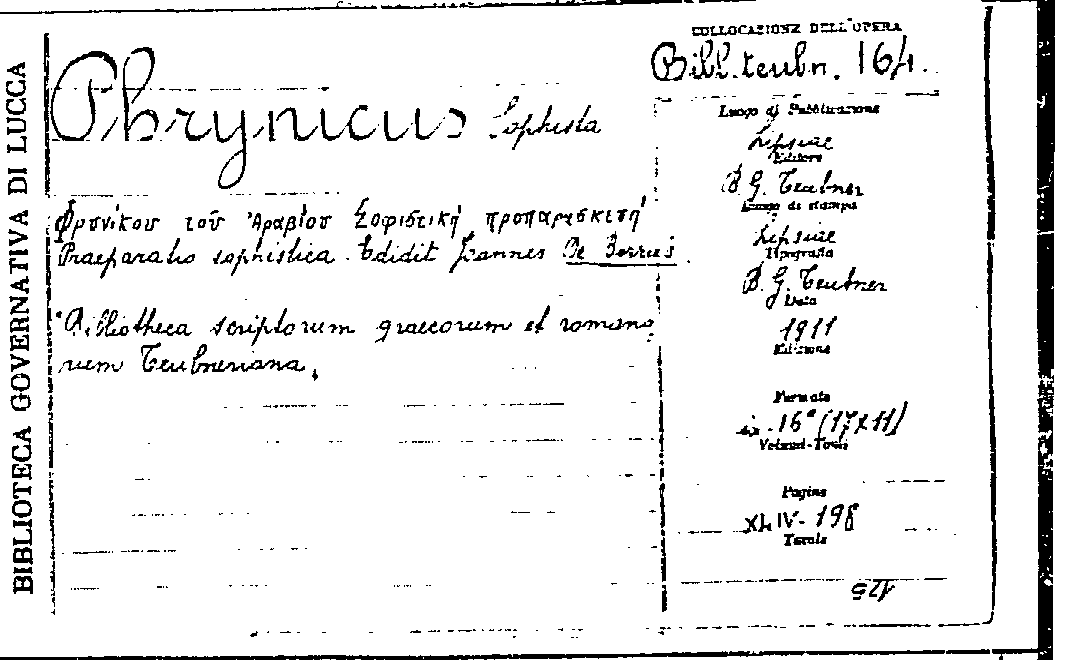 BIBLIOTECA GOVERNATIVA DI LUCCA
COLLOCAZIONE DELL'OPERA
Bibl. teubn. 164.
Phrynicus Sophista
Φρυνίκου τοῦ Ἀραβίου Σοφιστικὴ προπαρασκευή
Praeparatio sophistica. Edidit Joannes De Borries
"Bibliotheca scriptorum graecorum et romano
rum Teubneriana,
Luogo di Pubblicazione
Lipsiae
Editore
B. G. Teubner
Luogo di stampa
Lipsiae
Tipografia
B. G. Teubner
Data
1911
Edizione
Formato
in 16° (17x11)
Volumi-Tomi
Pagine
XLIV-198
Tavole
125